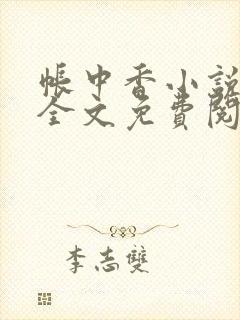 帳中香小説
全文免費閱
李志雙